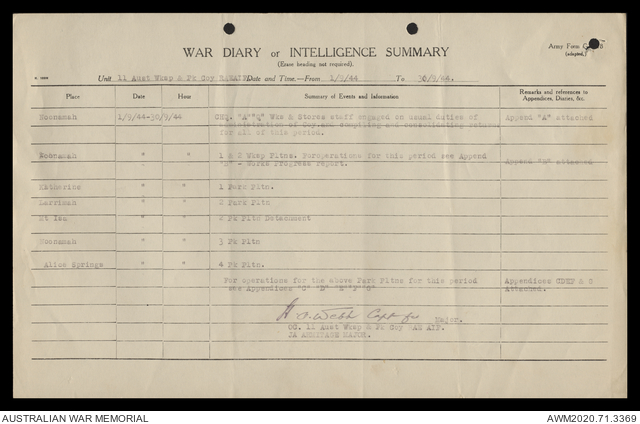 WAR DIARY or INTELLIGENCE SUMMARY
(Erase heading not required).
Army Form
(adapted.)
Unit 11 Aust Wksp & Pk Coy RAEAIF Date and Time.—From 1/9/44 To 30/9/44.
Place Date Hour Summary of Events and Information Remarks and references to Appendices, Diaries, &c.
Noonamah 1/9/44-30/9/44 CHQ. "A" "Q" Wks & Stores staff engaged on usual duties of
administration of Coy and compiling and consolidating
for all of this period. Append "A" attached
Noonamah " " 1 & 2 Wksp Pltns. For operations for this period see Append
"B" - Works Progress Report. Append "B" attached
Katherine " " 1 Park Pltn.
Larrimah " " 2 Park Pltn
Mt Isa " " 2 Pk Pltn Detachment
Noonamah " " 3 Pk Pltn
Alice Springs " " 4 Pk Pltn.
For operations for the above Park Pltns for this period
see Appendices Appendices CDEF & G
Attached.
Webb Capt for Major.
OC. 11 Aust Wksp & Pk Coy RAE AIF.
JA ARMITAGE MAJOR.
AUSTRALIAN WAR MEMORIAL
AWM2020.71.3369